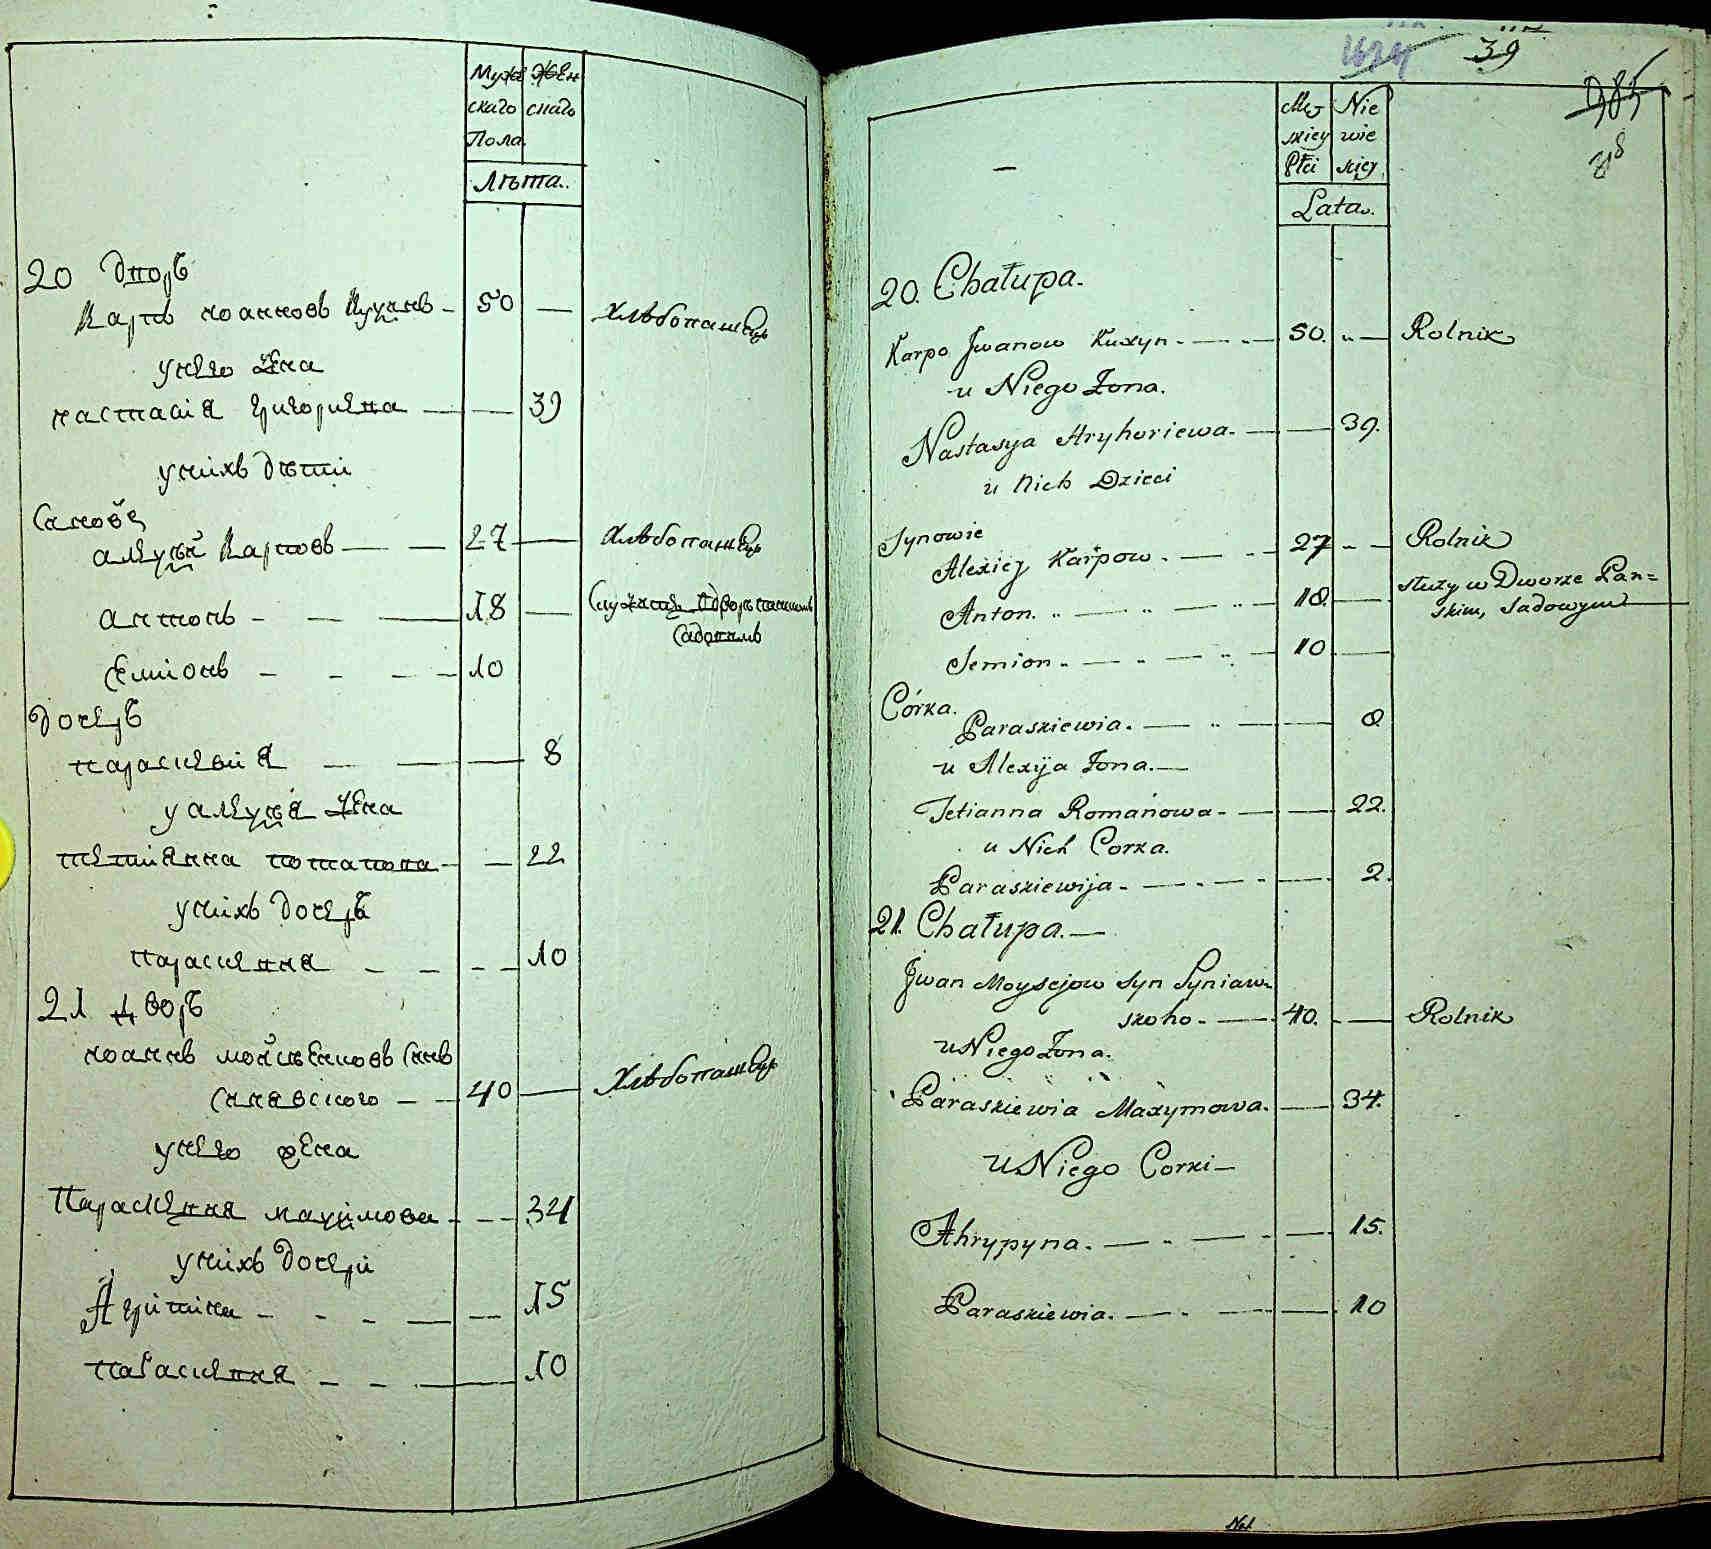 Муже Жен
скаго скаго
Пола
Лѣта.
20 дворъ
Карпъ иоанновъ Кухинъ 50 — хлѣбопашецъ
унего жена
настасія григориева — 39
унихъ дѣти
Синовѣ
алеуѣй Карповъ — 27 — хлѣбопашецъ
антонъ - 18 — Служитъ вдворѣ панскомъ
Садовимъ
Семіонъ - 10
дочеръ
параскевия — 8
у алеуѣя жена
тетиянна потапова — 22
унихъ дочеръ
параскевия - 10
21 дворъ
иоаннъ мойсѣеновъ Синъ
Синявского — 40 — Хлѣбопашецъ
унего жена
Параскевия мауимова - 34
унихъ дочери
Агрипина - 15
параскевия - 10
39
985
Mę- Nie
skiey wie
Płci skiey
Lata.
20. Chałupa.
Karpo Jwanow Kuxyn. 50. — Rolnik
u Niego Zona.
Nastasya Hryhoriewa. — 39.
u Nich Dzieci
Synowie
Alexiey Karpow. 27 — Rolnik
Anton. 18. — słuzy w Dworze Pan=
skim, Sadowym
Semion 10 —
Córka.
Paraskiewia. — 8
u Alexija Zona.
Tetianna Romanowa — 22.
u Nich Corka.
Paraskiewija — 2.
21. Chałupa.
Jwan Moysejow syn Syniaw-
skoho. — 40. — Rolnik
u Niego Zona.
Paraskiewia Maxymowa. — 34.
u Niego Corki
Ahrypyna. — 15.
Paraskiewia. — 10